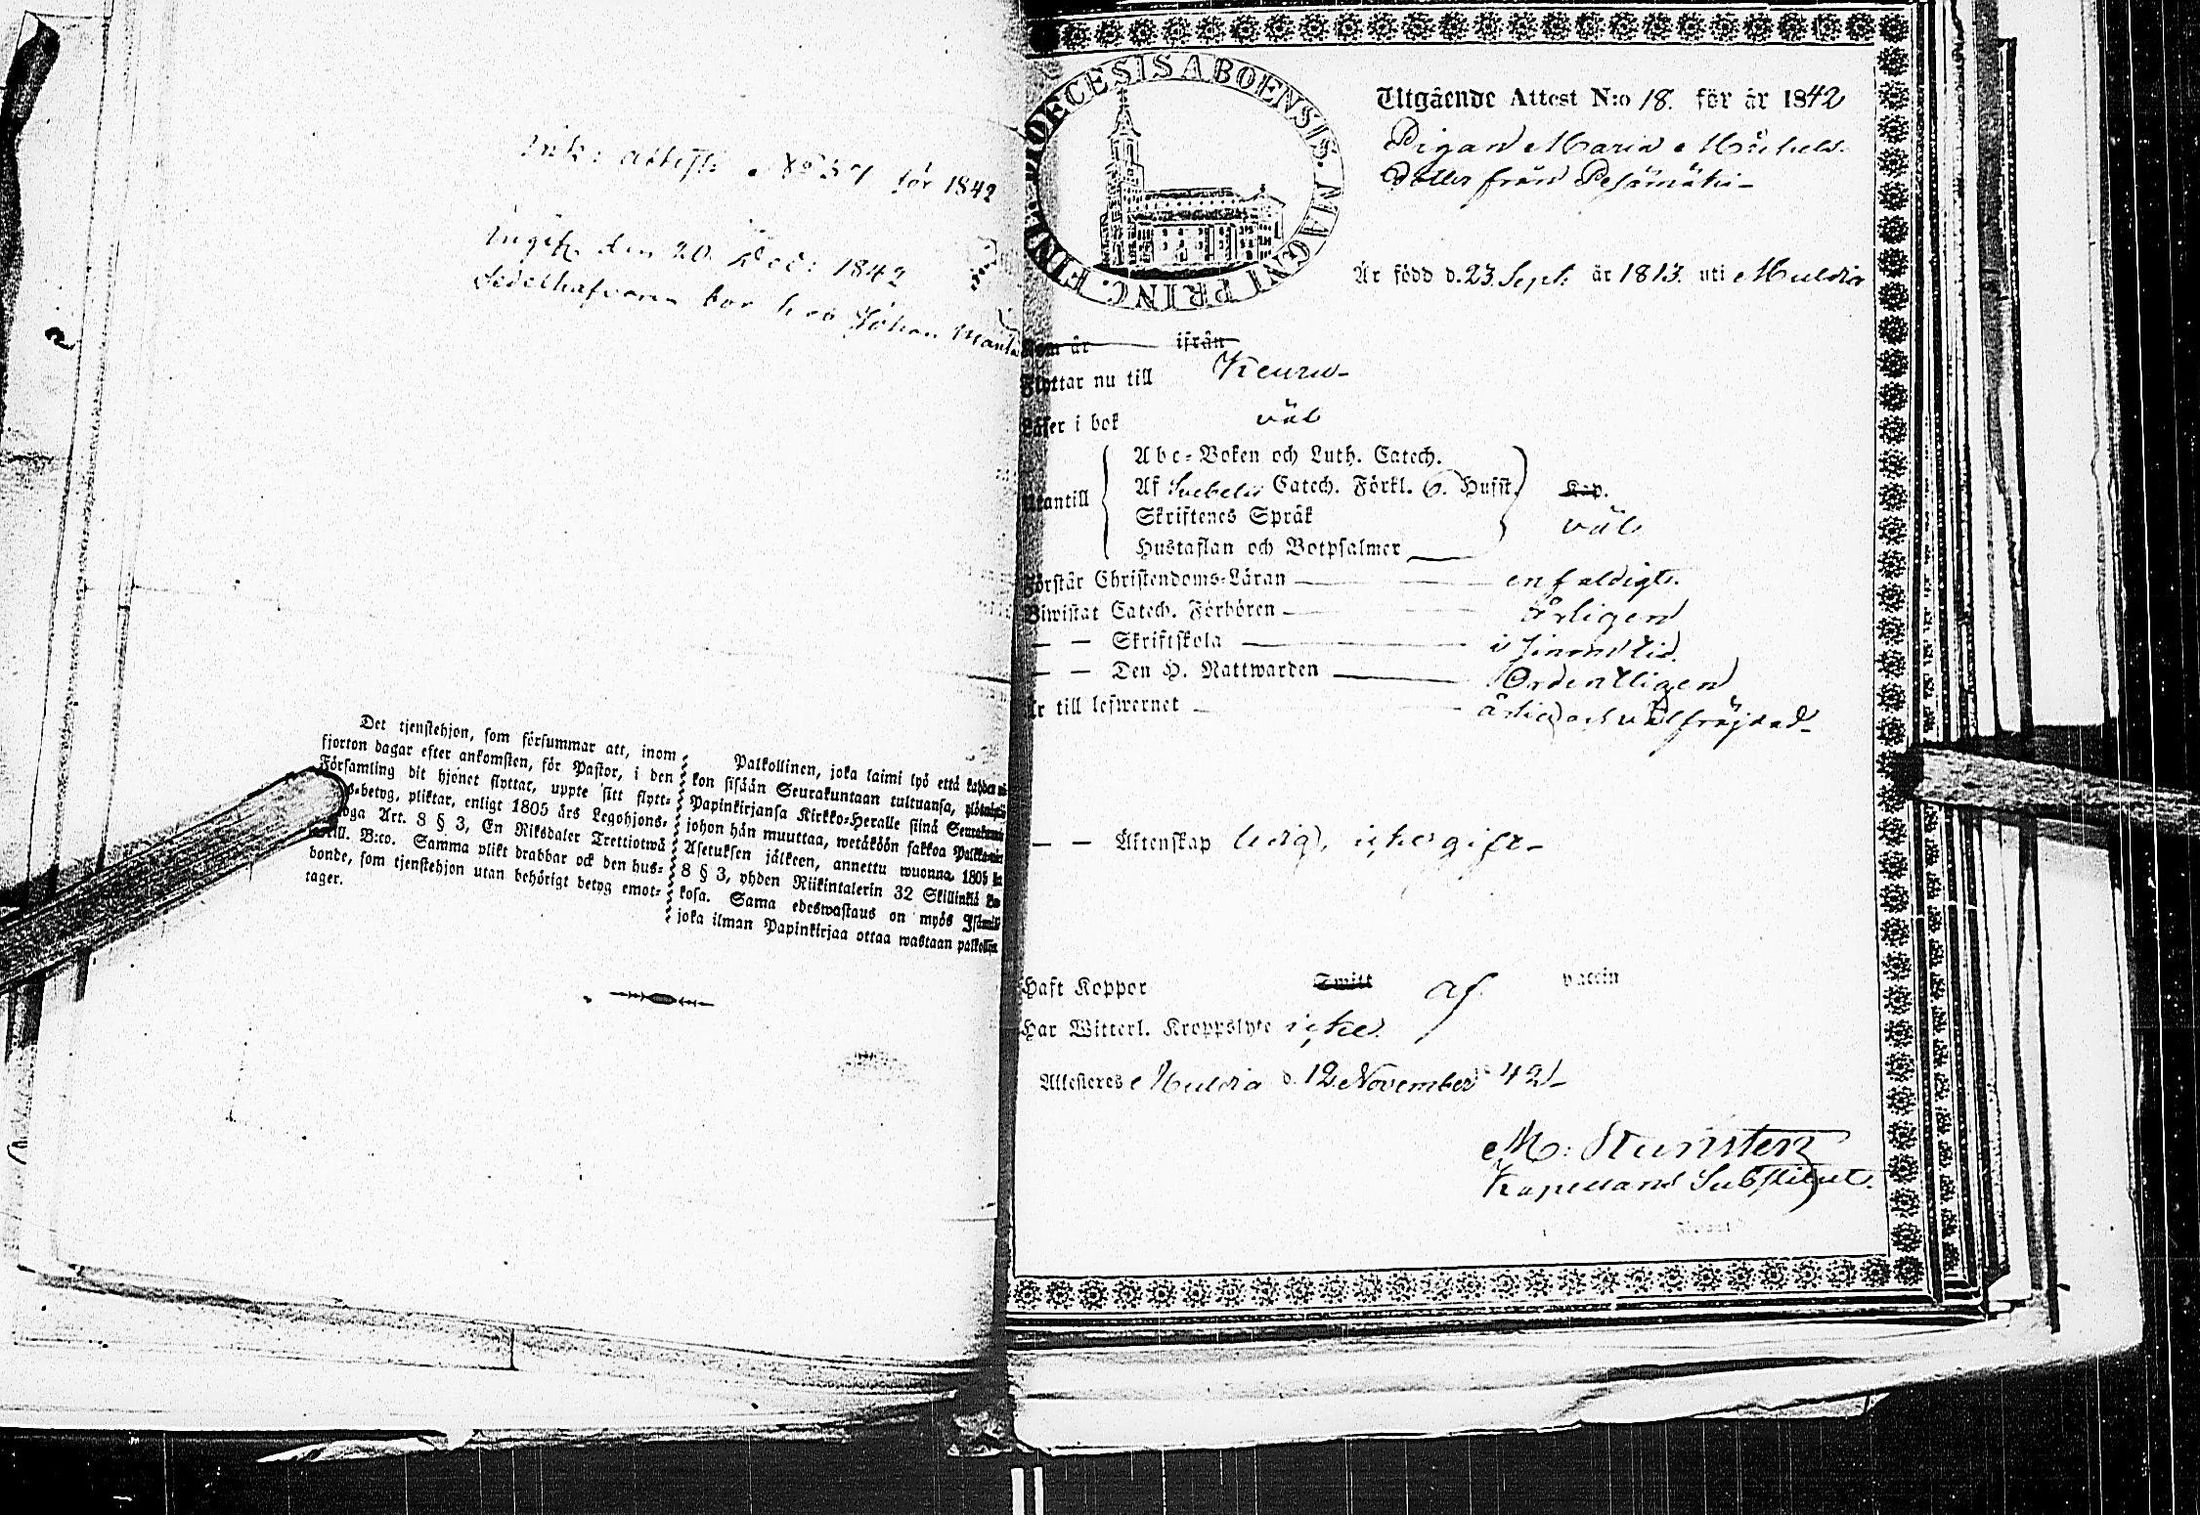 Ink: attest. No 57 för 1842
Ingifv. den 20 Dec: 1842
Sedelhafvaren bor hos Johan
Det tjenstehjon, som försummar att, inom
fjorton dagar efter ankomsten, för Pastor, i den
Församling dit hjonet flyttar, uppte sitt flytt-
betyg, pliktar, enligt 1805 års Legohjons-
Art. 8 § 3, En Riksdaler Trettiotwå
B:co. Samma plikt drabbar ock den hus-
bonde, som tjenstehjon utan behörigt betyg emot-
tager.
Palkollinen, joka laimi lyö että
kon sisään Seurakuntaan tultuansa,
Papinkirjansa Kirkko-Heralle siinä
johon hän muuttaa, wetäköön sakkoa
Asetuksen jälkeen, annettu wuonna 1805
8 § 3, yhden Riikintalerin 32 Skillinkiä
kosa. Sama edeswastaus on myös
joka ilman Papinkirjaa ottaa wastaan
DIOECESIS ABOENSIS. MAGNI PRINC. FINL.
Utgående Attest N:o 18. för år 1842
Pigan Maria Michels
Dotter från Pesämäki
Är född d. 23 Sept. år 1813. uti Muldia
Kom år ifrån
Flyttar nu till Keuru
Läser i bok väl
Abc-Boken och Luth. Catech.
Af Svebelii Catech. Förkl. 6. Husst. Kap.
Utantill
Skriftenes Språk väl
Hustaflan och Botpsalmer
Förstår Christendoms-Läran enfaldigt.
Biwistat Catech. Förhören årligen
— — Skriftskola i sinom tid.
— — Den H. Nattwarden Ordentligen
Är till lefwernet ärlig och välfräjdad
— — Äktenskap ledig, icke gift
Haft Koppor Smitt af vaccin
Har Witterl. Kroppslyte icke.
Attesteres Muldia d. 12 November 42
M: Stenstén
Kapellans Substitut.